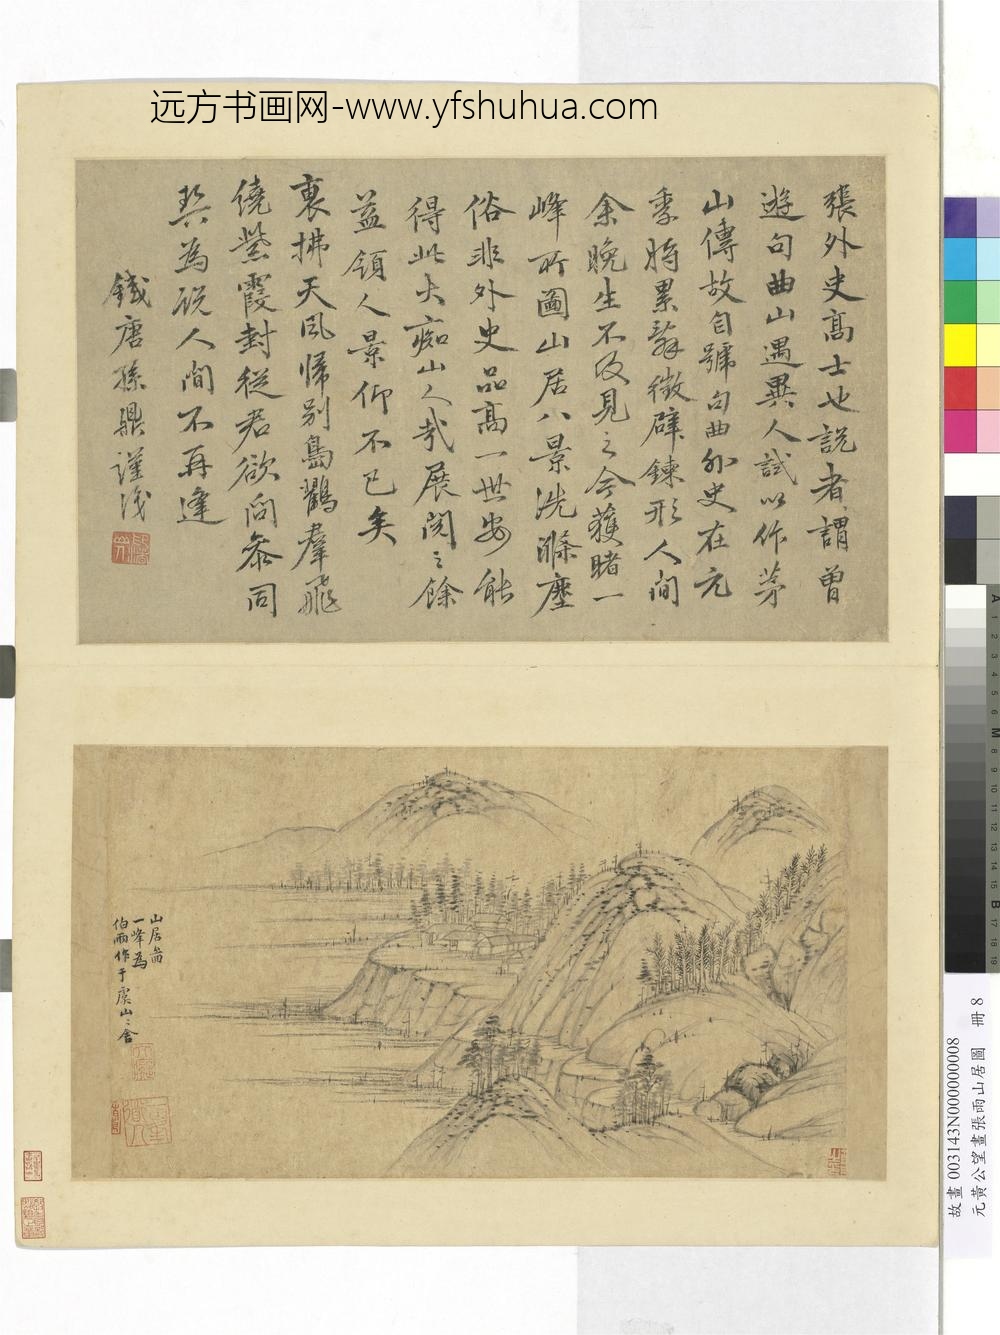 远方书画网-www.yfshuhua.com
張外史高士也說者謂曾
遊句曲山遇異人試以作茅
山傳故自號句曲外史在元
季時累辭徵辟鍊形人間
余晚生不及見之今獲睹一
峰所圖山居八景洗滌塵
俗非外史品高一世安能
得此大癡山人哉展閱之餘
益領人景仰不已矣
裏拂天風歸別島鸛群飛
繞紫霞封從君欲問參同
契為說人間不再逢
錢唐孫鼎謹識
山居圖
一峰為
伯雨作于虞山之舍
故畫 003143N000000008
元黃公望畫張雨山居圖 冊 8
A 1 2 3 4 5 6 M 8 9 10 11 12 13 14 15 B 17 18 19